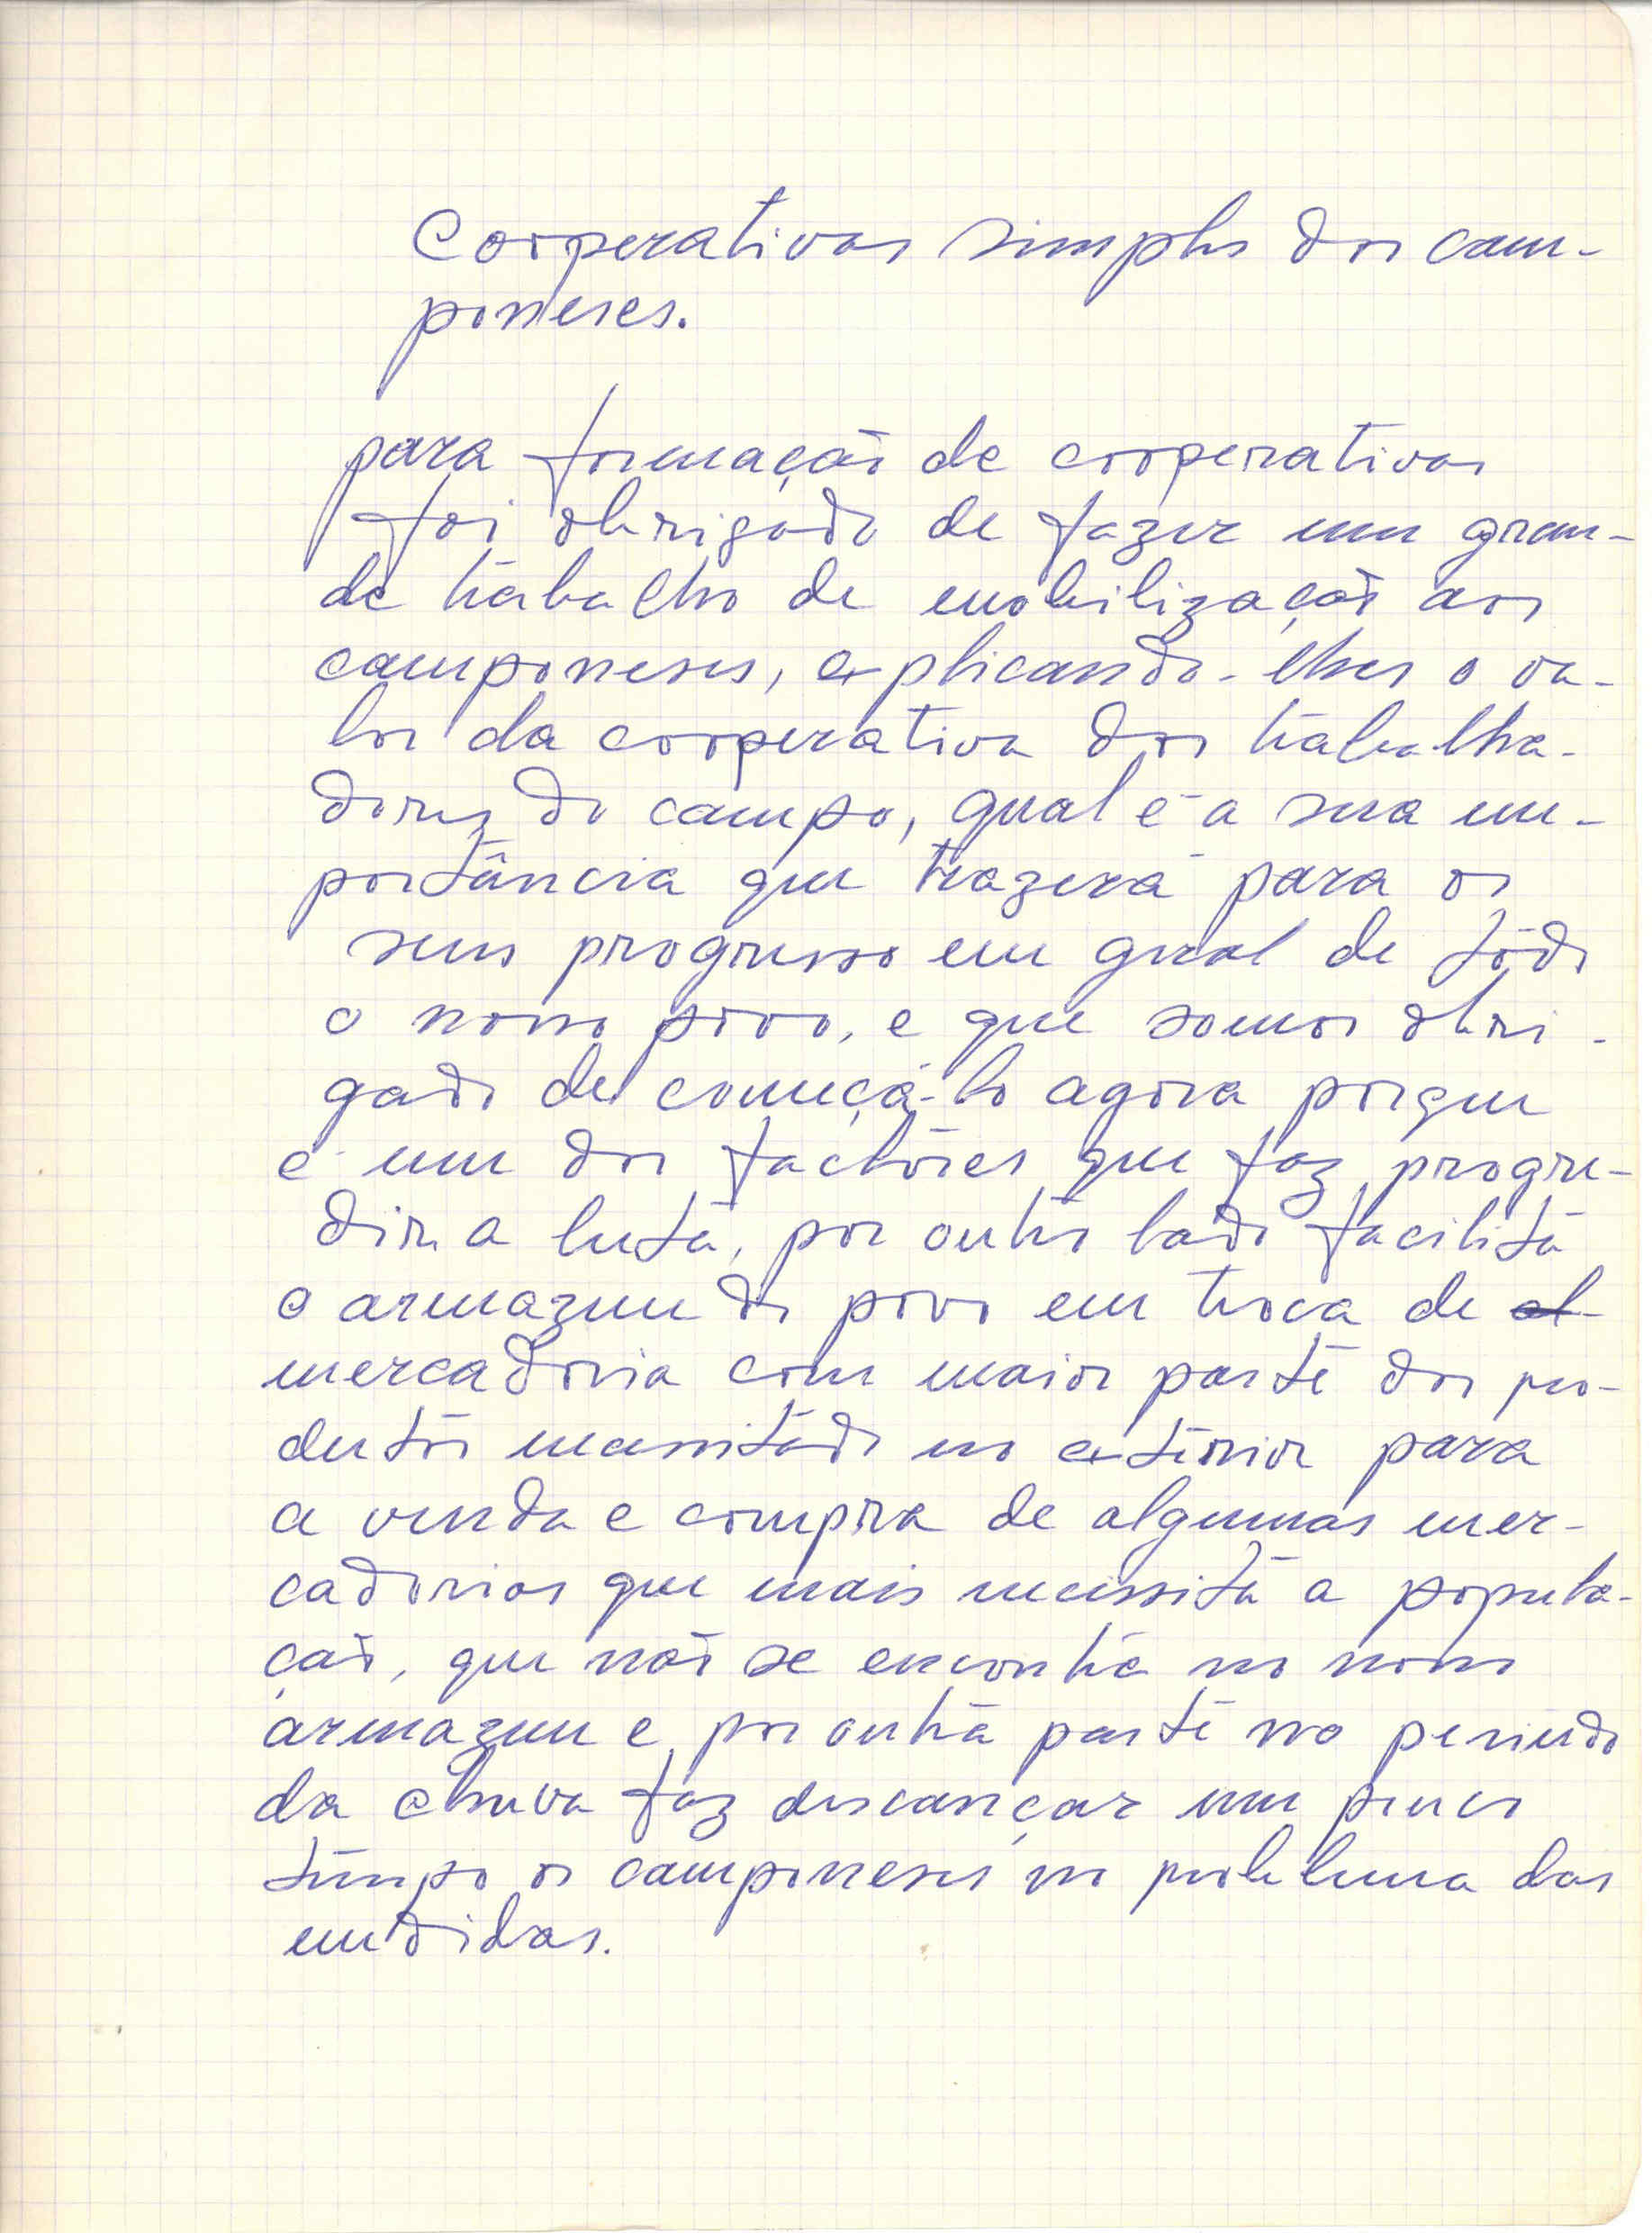 Cooperativas simples dos cam-
poneses.
para formação de cooperativas
foi obrigado de fazer um gran-
de trabalho de mobilização aos
camponeses, explicando-lhes o va-
lor da cooperativa dos trabalha-
dores do campo, qual é a sua im-
portância que trazerá para os
seus progresso em geral de tôdo
o nosso povo, e que somos obri-
gado de começá-lo agora porque
é um dos factôres que faz progre-
dir a luta, por outro lado facilita
o armazem do povo em troca de al-
mercadoria com maior parte dos pro-
dutos necessitado no exterior para
a venda e compra de algumas mer-
cadorias que mais necessita a popula-
ção, que não se encontra no nosso
armazem e por outra parte no período
da chuva faz descançar um pouco
tempo os camponeses no problema das
medidas.